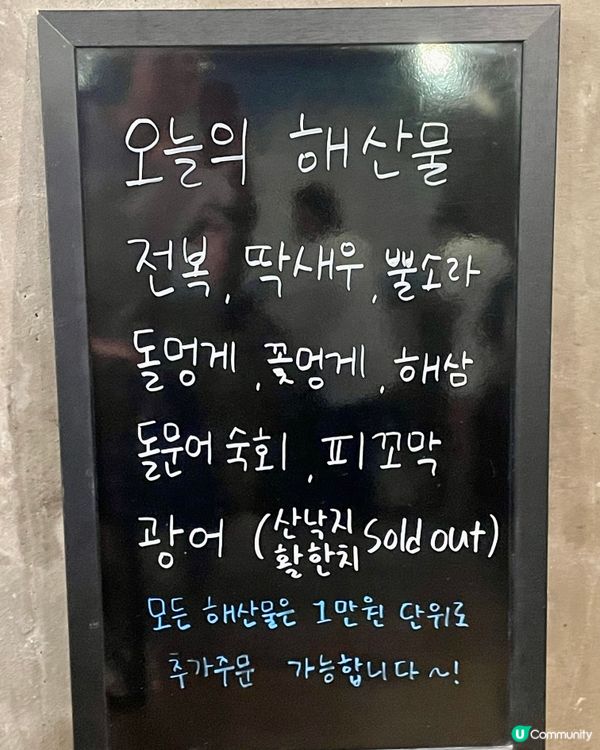 오늘의 해산물
전복, 딱새우, 뿔소라
돌멍게, 꽃멍게, 해삼
돌문어숙회, 피꼬막
광어 (산낙지 활한치 Sold out)
모든 해산물은 1만원 단위로
추가주문 가능합니다~!
U Community